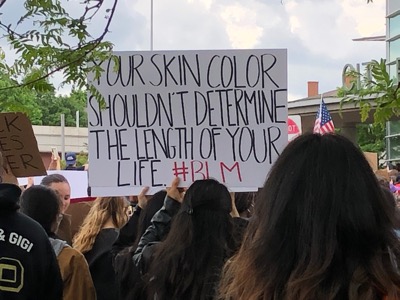 YOUR SKIN COLOR
SHOULDN'T DETERMINE
THE LENGTH OF YOUR
LIFE. #BLM
& GIGI